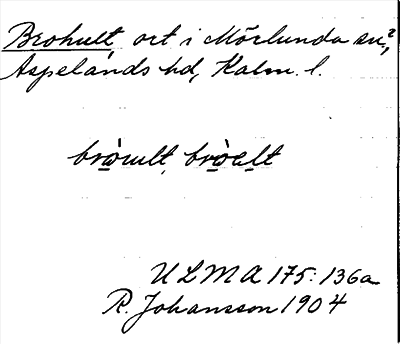 Brohult, ort i Mörlunda sn,
Aspelands hd, Kalm. l.
bròult, bròelt
ULMA 175:136a
R. Johansson 1904